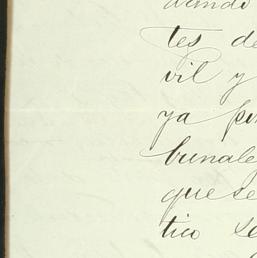 tes de
vil y
ya
bunale
que se
tico se